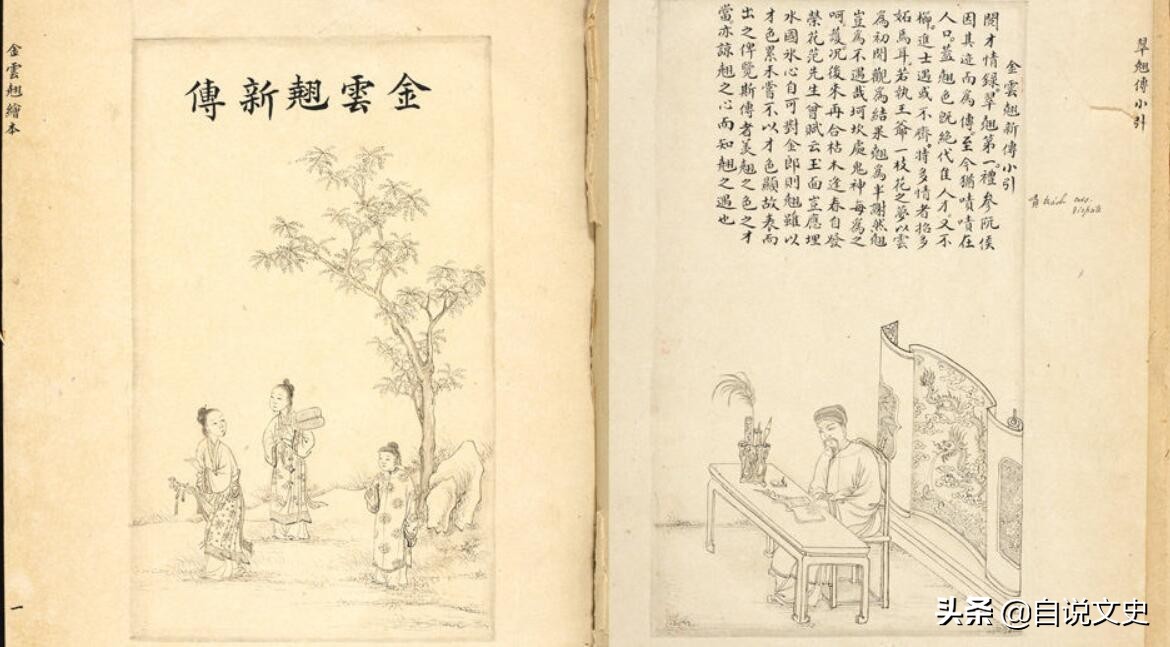 翠翹傳小引
金雲翹新傳小引
閱才情錄。翠翹第一。禮參阮侯
因其迹而為傳。至今猶嘖嘖在
人口。蓋翹色既絕代佳人。才又不
櫛。進士遇或不齊。特多情者招多
妬焉耳。若執王爺一枝花之夢以雲
為初開觀為結果翹為半謝然翹
豈為不遇哉坷坎處鬼神每為之
呵護况復來再合枯木逢春自發
榮花范先生曾賦云玉面豈應埋
水國氷心自可對金郎則翹雖以
才色累未嘗不以才色顯故表而
出之俾覽斯傳者美翹之色之才
當亦諒翹之心而知翹之遇也
金雲翹新傳
金雲翹繪本
一
头条 @自说文史